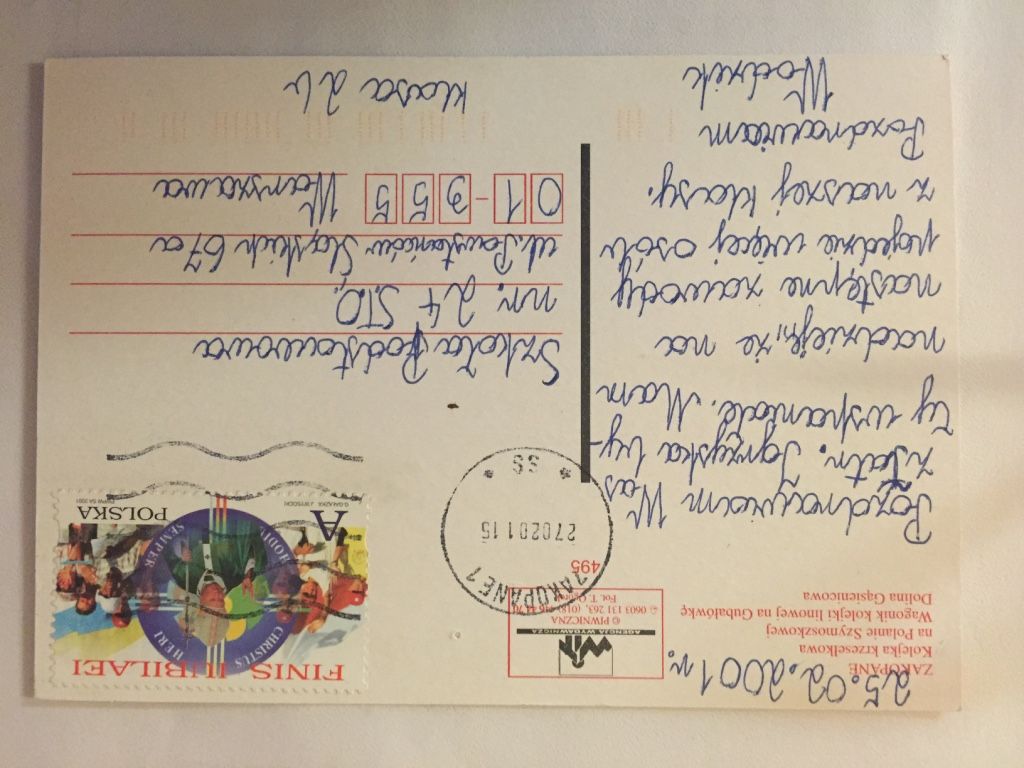 25.02.2001 r.
ZAKOPANE
Kolejka krzesełkowa
na Polanie Szymoszkowej
Wagonik kolejki linowej na Gubałówkę
Dolina Gąsienicowa
WiT
AGENCJA WYDAWNICZA
© PIWNICZNA
© 0603 131 263, (018) 446 44 70
Fot. T.
495
Pozdrawiam Was
z Tatr. Igrzyska by-
ły wspaniałe. Mam
nadzieję, że na
następne zawody
pojedzie więcej osób
z naszej klasy.
Pozdrawiam
Włodzik
FINIS IUBILAEI
CHRISTUS HERI
HODIE SEMPER
A
POLSKA
PWPW SA 2001
ZAKOPANE 1
270201 15
* SS *
Szkoła Podstawowa
nr. 24 STO,
ul. Powstańców Śląskich 67a
01-355 Warszawa
klasa 2b